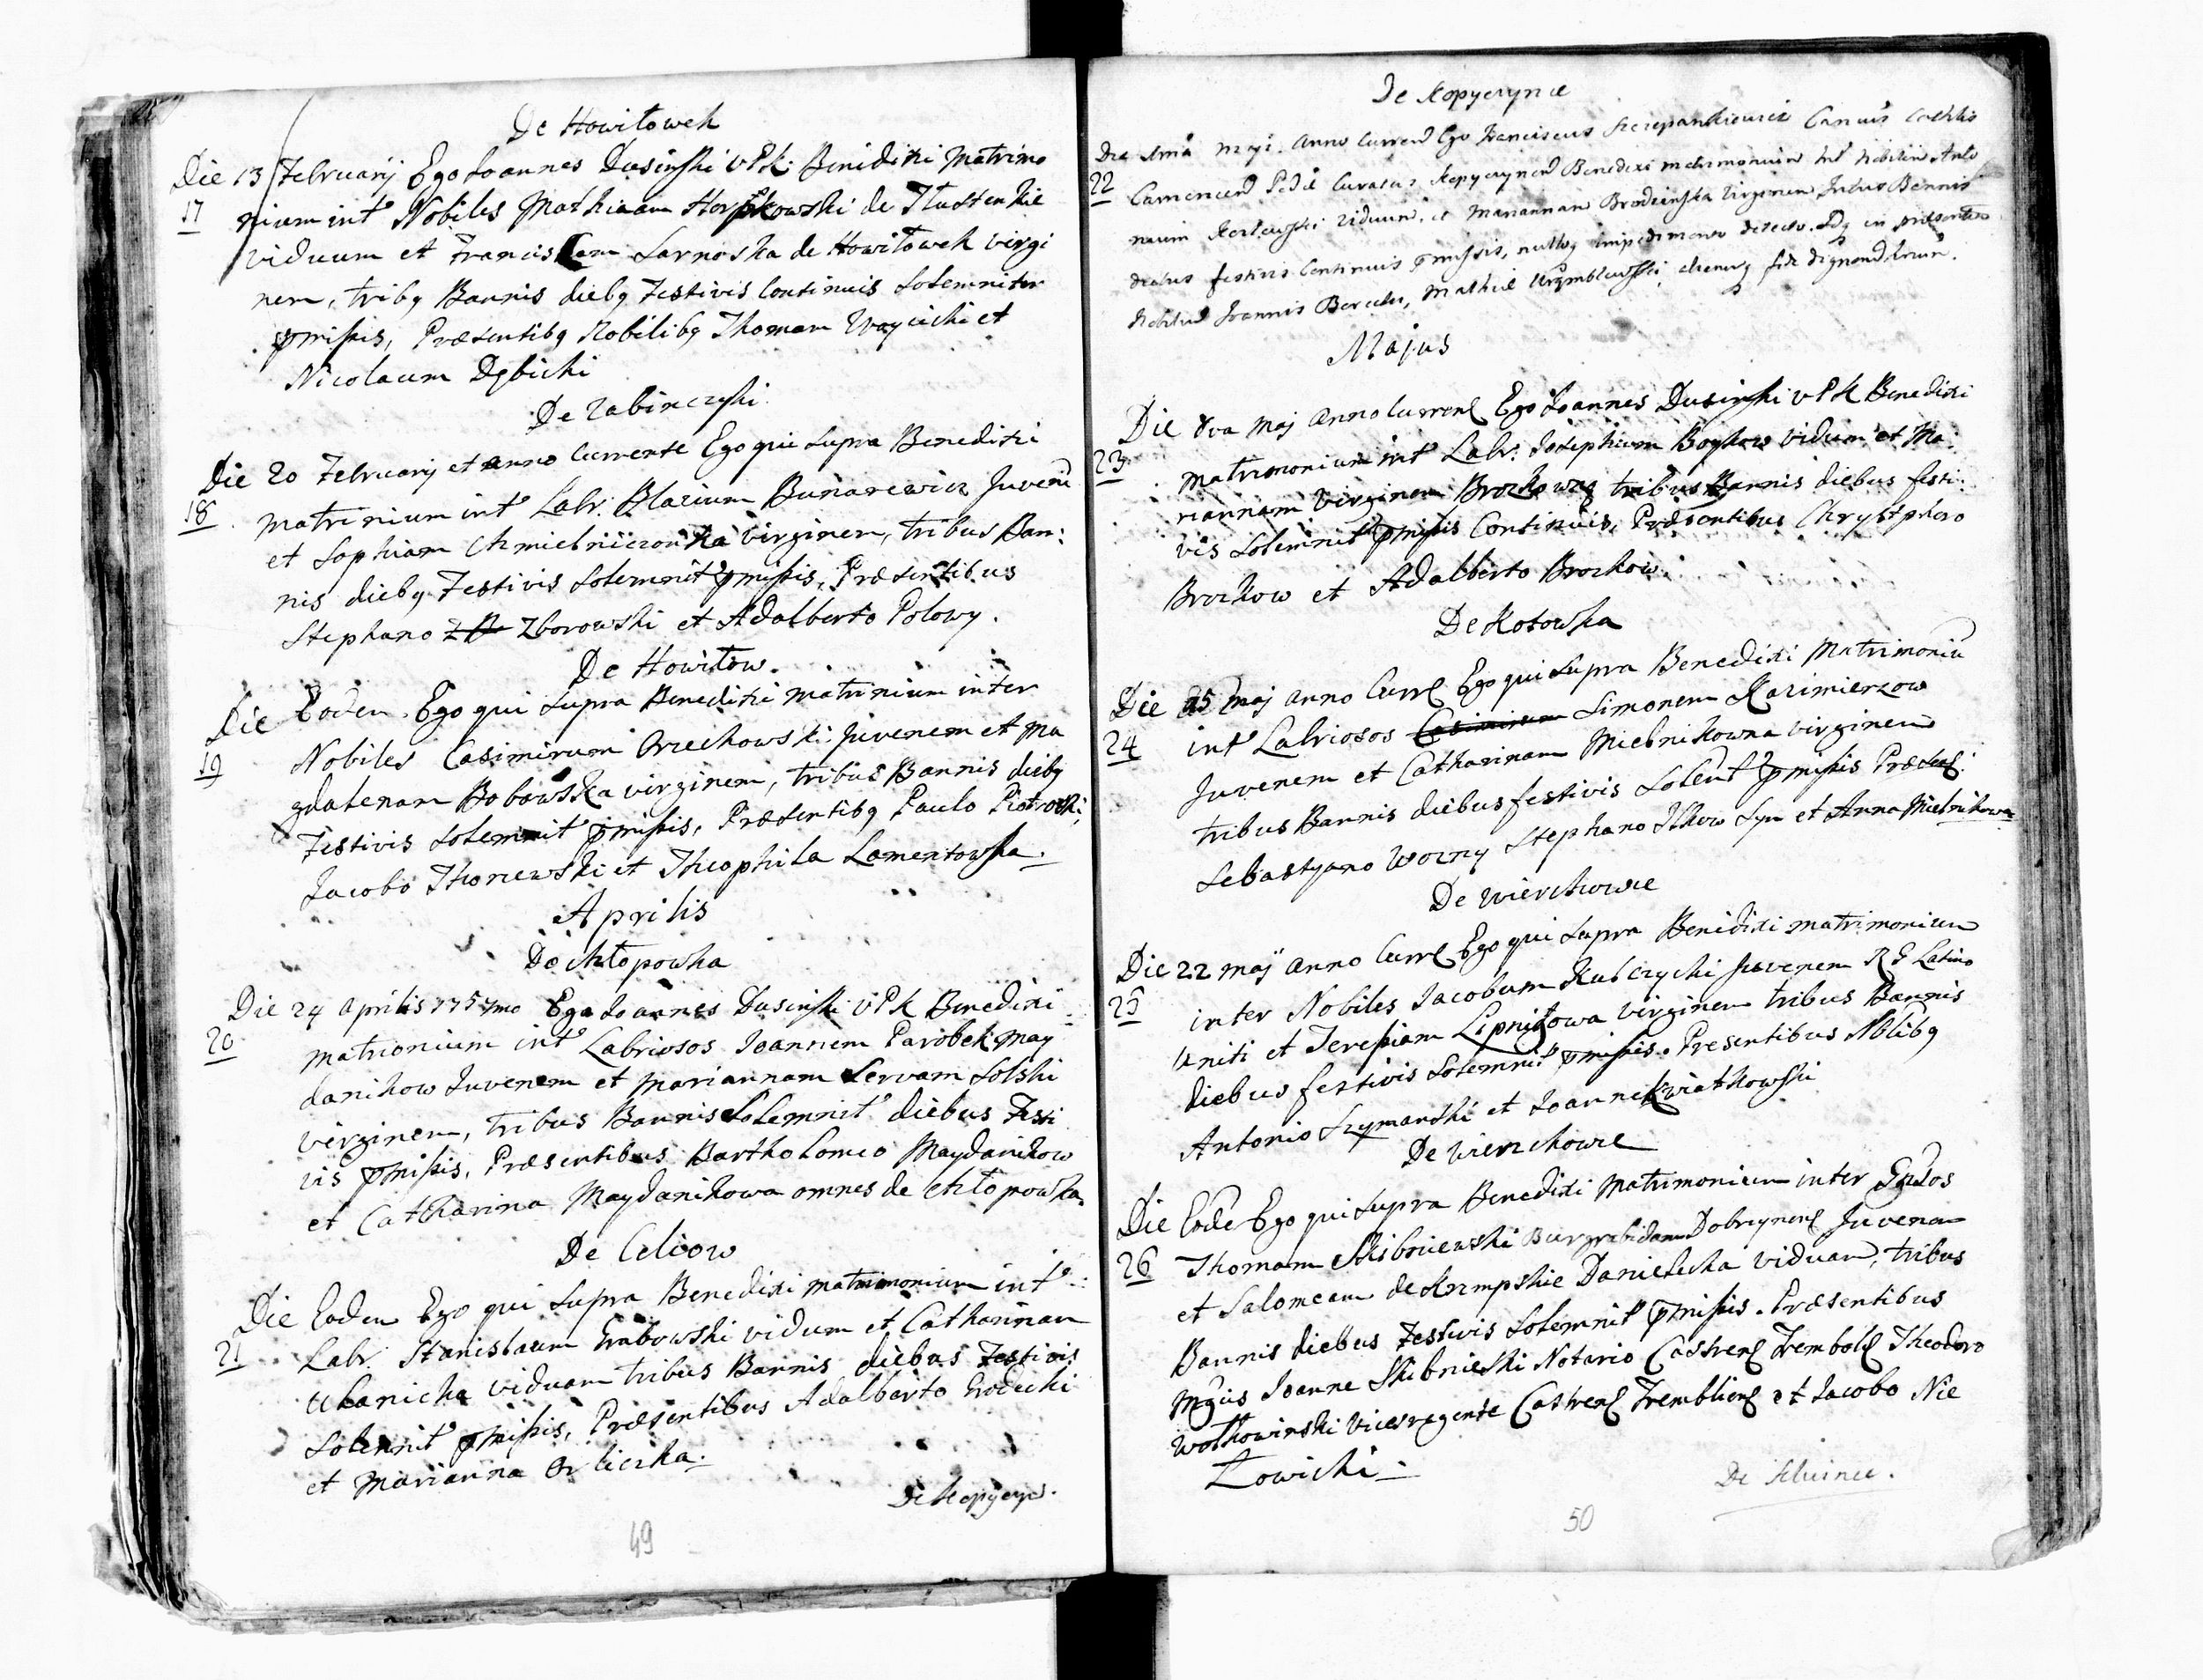 De Howiłowek
Die 13 Februarij Ego Joannes Dusinski VPK. Benidixi Matrimo
17 nium int Nobiles Mathiaam de Tłustenkie
viduum et Franciscam Sarnoska de Howiłowek virgi
nem, tribq Bannis diebq Festivis Continuis Solemniter
pmissis, Præsentibq Nobilibq Thomam Woycicki et
Nicolaum Dębicki
De Zabinczyki
Die 20 Februarij et anno Currente Ego qui Supra Benedixi
18 matrinium int Labr. Blazium Bunarewicz Juvene
et Sophiam virginem, tribus Ban:
nis diebq Festivis Solemnit pmissis, Præsentibus
Stephano Zborowski et Adalberto Polowy.
De Howiłow.
Die Eodem Ego qui Supra Benedixi matrinium inter
19 Nobiles Casimirum Orzechowski Juvenem et Ma
gdalenam Bobowska virginem, tribus Bannis diebq
Festivis Solemnit pmissis, Præsentibq Paulo Piotroski,
Jacobo Thorzewski et Theophila Lamentowska.
Aprilis
De Chłopowka
Die 24 Aprilis 1757mo Ego Joannes Dusinski VPK Benedixi
20 matrionium int Labriosos Joannem Parobek May
danikow Juvenem et Mariannam Servam Solski
virginem, tribus Bannis Solemnit diebus Festi
vis pmissis, Præsentibus Bartholomeo Maydanikow
et Catharina Maydanikowa omnes de Chłopowka
De Celiow
Die Eodem Ego qui Supra Benedixi matrimonium int
21 Labr. Stanislaum Grabowski vidum et Catharinam
Ukanicha viduam tribus Bannis diebus Festivis
Solennit pmissis, Præsentibus Adalberto Grodecki
et Marianna
De Kopyczyn.
49
De Kopyczynce
Die Maji Anno Curren Ego Franciscus Szczepankiewicz
22 Camenecen Curatus Kopyczynen Benedixi matrimonium Int Nobilem Anto
nium viduum, et Mariannam Brodzinska Virginem Bannis
diebus festivis Continuis pmissis, nulloq impedimento detecto. in præsentia
Nobilium Joannis Mathiæ aliorumq fide dignorum
Majus
Die 8va Maj Anno Curren Ego Joannes Dusinski VPK Benedixi
23 Matrimonium int Labr. Josephum Boykow vidum et Ma
riannam virginem tribus Bannis diebus festi
vis Solemnit pmissis Continuis, Præsentibus Chrystphoro
Brozkow et Adalberto Brozkow.
De Kotowka
Die 15 Maj Anno Curr Ego qui Supra Benedixi Matrimoniu
24 int Labriosos Simonem Kazimierzow
Juvenem et Catharinam Mielnikowna virginem
tribus Bannis diebus festivis Solent pmissis Præsen.
Sebastyano Wozny Stephano Ilkow Syn et Anna Mielnikowa
De Wierchowce
Die 22 Maij Anno Curr Ego qui Supra Benidixi matrimonium
25 inter Nobiles Jacobum Kulczycki Juvenem R G Latino
Uniti et Teressiam virginem tribus Bannis
diebus festivis Solemnit pmissis. Presentibus Nblibq
Antonio Szymanski et Joanne Kwiatkowski
De Wierzchowce
Die Eode Ego qui Supra Benedixi Matrimonium inter Gnsos
26 Thomam Skibniewski Burgrabidam Juvenem
et Salomeam de Krempskie Danielecka viduam, tribus
Bannis diebus Festivis Solemnit pmissis. Præsentibus
Mgcis Joanne Skibnieski Notario Castren Trembol Theodoro
Wołkowinski Vicesregente Castren Tremblion et Jacobo Nie
Zowicki
50